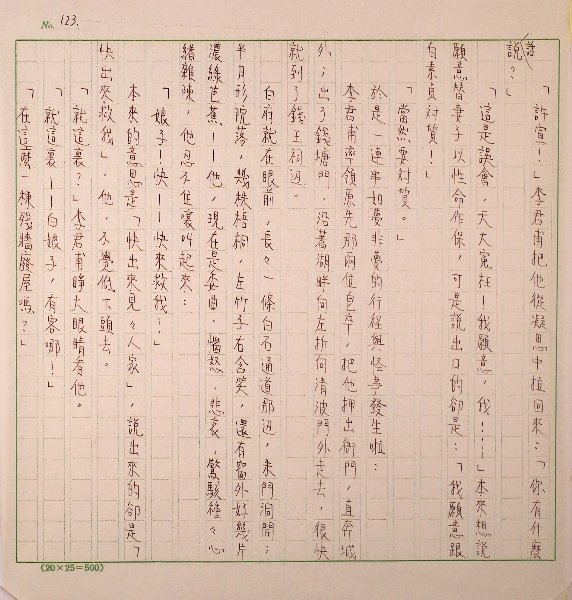 No. 123.
「許宣!」李君甫把他從凝思中植回來:「你有什麼
話說?」
「這是誤會,天大冤枉!我願意,我!⋯」本來想說
願意替妻子以性命作保,可是說出口的卻是:「我願意跟
白素貞對質!」
「當然要對質。」
於是一連串如夢非夢的行徑與怪事發生啦:
李君甫率領原先那兩位皂卒,把他押出衙門,直奔城
外;出了錢塘門,沿著湖畔向左折向清波門外走去,很快
就到了錢王祠邊。
白府就在眼前,長々一條白石通道那邊,朱門洞開;
半月形院落,幾株梧桐,左竹子右含笑,還有窗外好幾片
濃綠芭蕉——他,現在是委曲、惱怒、悲哀、驚駭種々心
緒雜陳,他忍不住嚷叫起來:
「娘子!快——快來救我!」
本來的意思是「快出來見々人家」,說出來的卻是「
快出來救我」,他,不覺低下頭去。
「就這裏?」李君甫睜大眼睛看他。
「就這裏——白娘子,有客哪!」
「在這麼一棟殘牆廢屋嗎?」
(20×25=500)